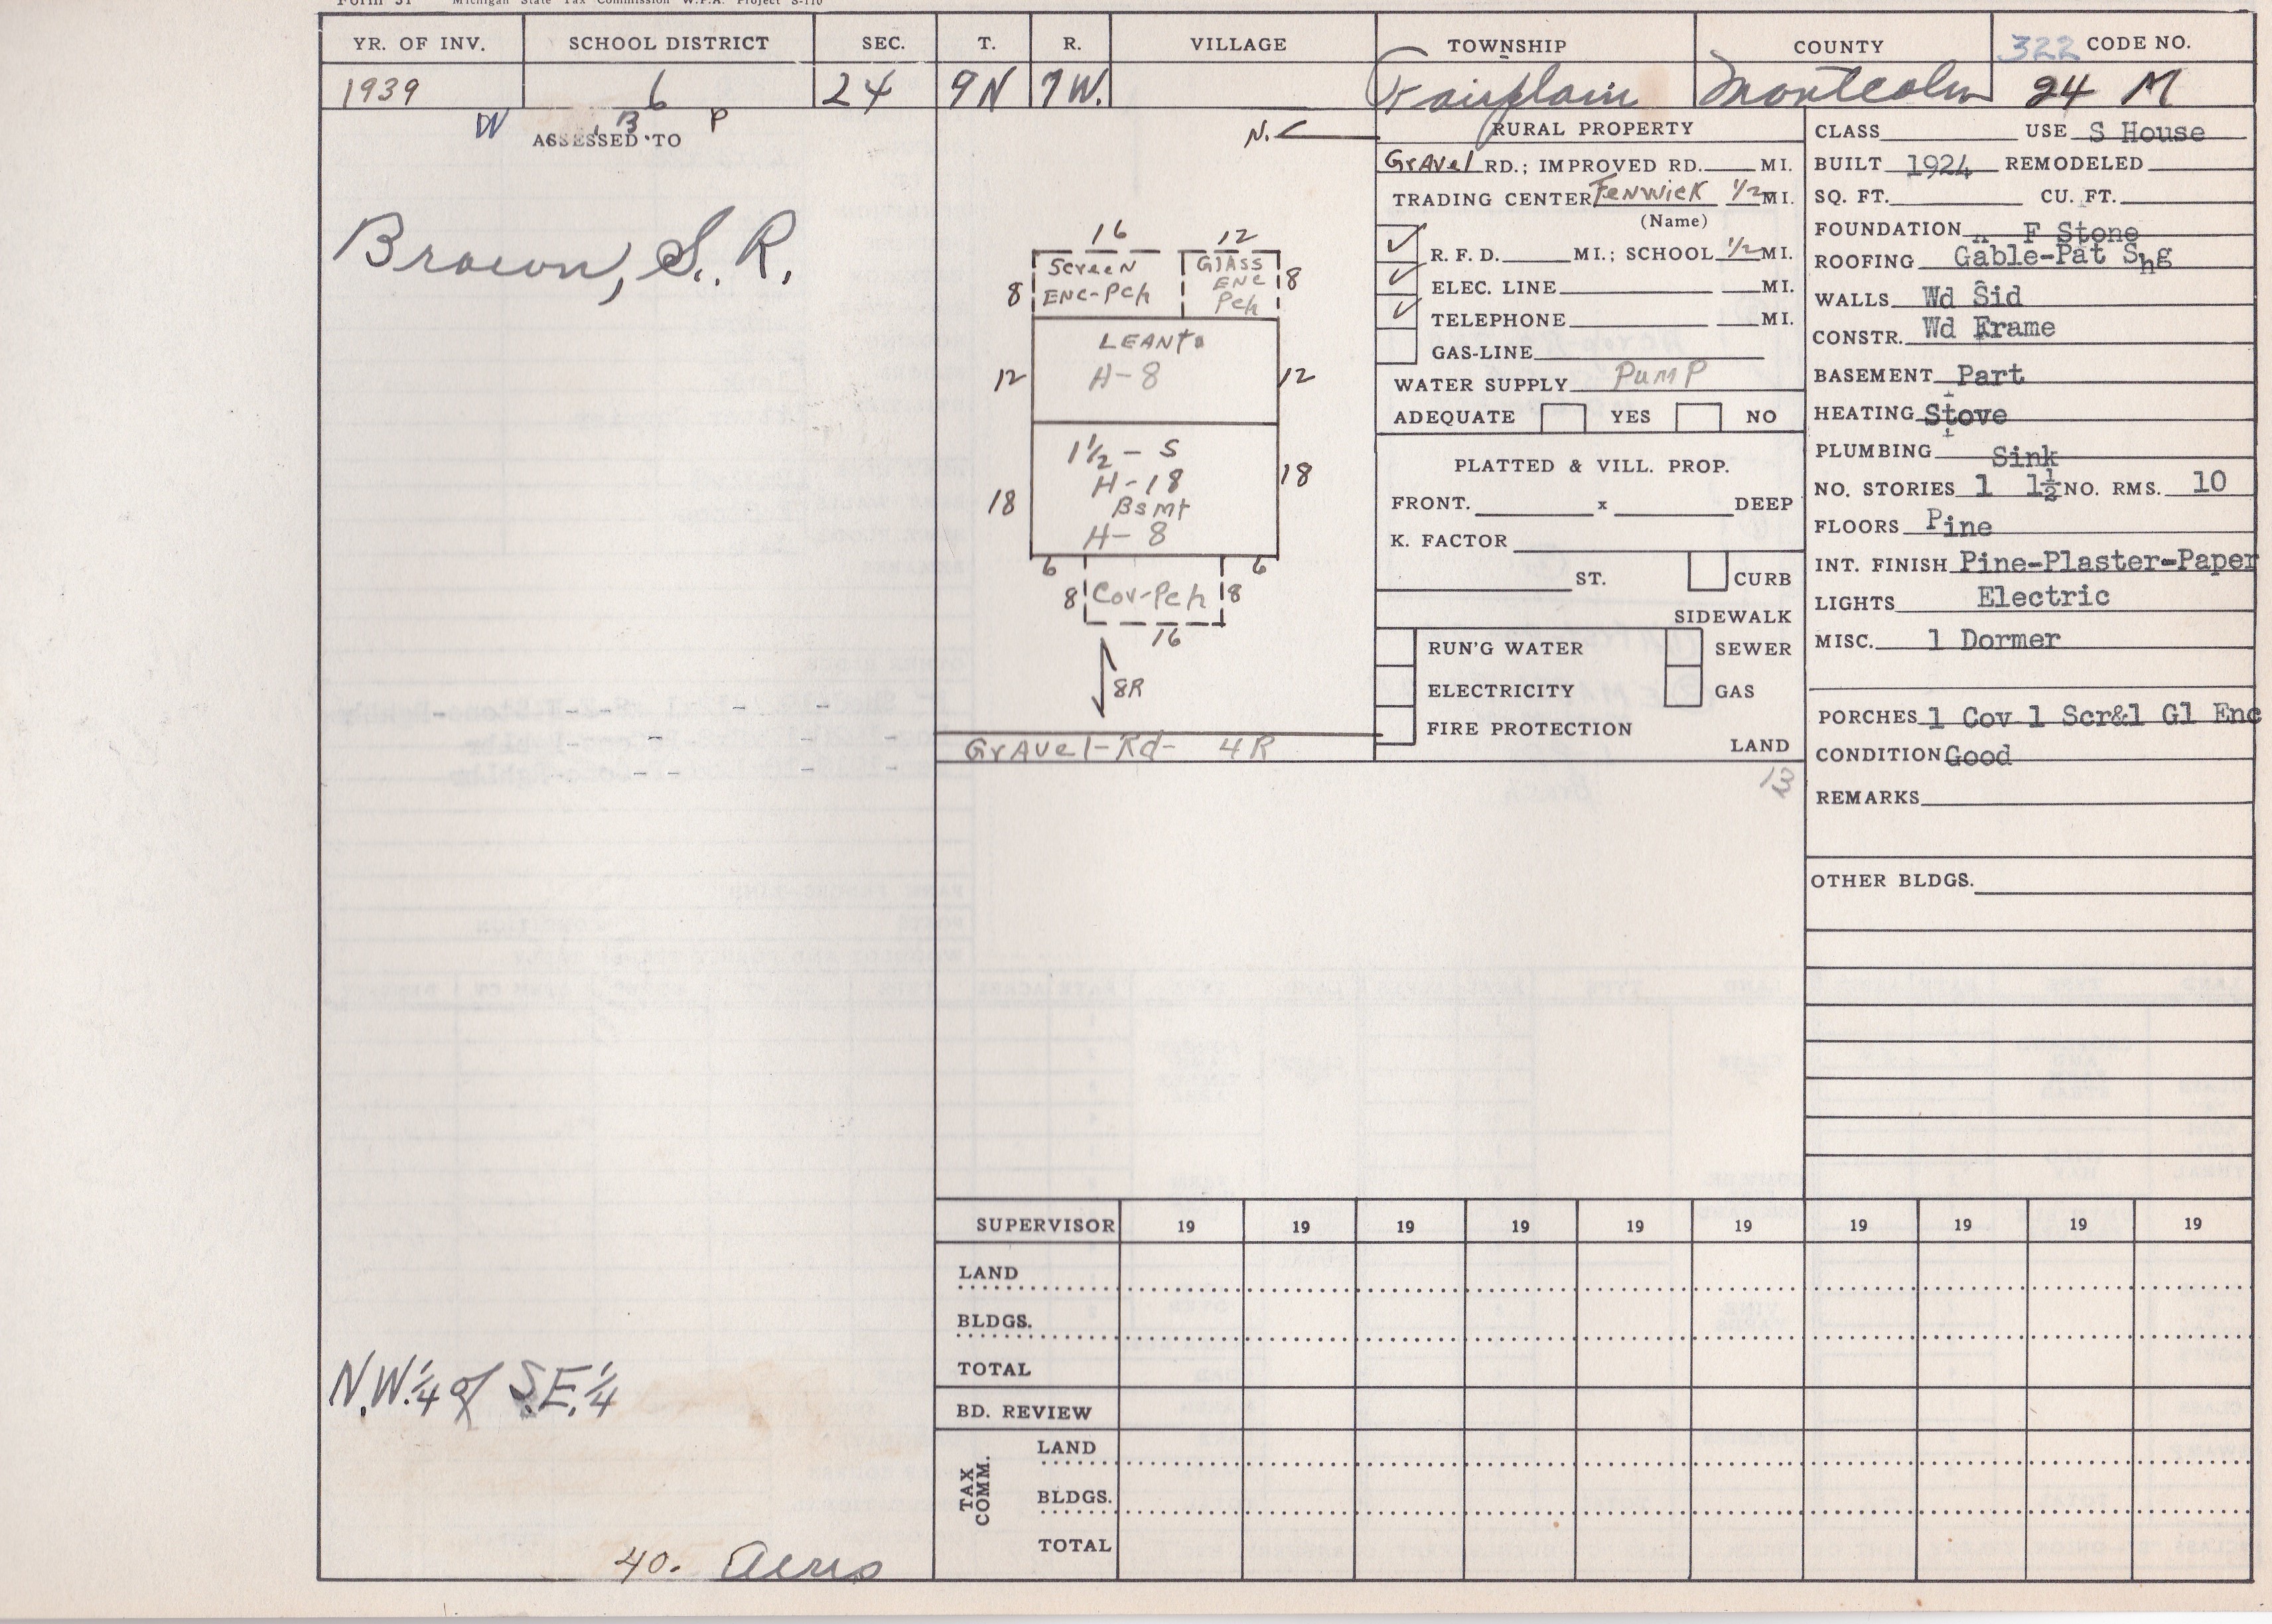 Form 31 Michigan State Tax Commission W.P.A. Project S-110
YR. OF INV. SCHOOL DISTRICT SEC. T. R. VILLAGE TOWNSHIP COUNTY 322 CODE NO.
1939 6 24 9N 7W. Fairplain Montcalm 24 M
W B P
ASSESSED TO
Brown, S. R.
N.W.¼ of S.E.¼
40. Acres
N.
16 12
8 Screen Enc-Pch Glass Enc Pch 8
LEANto
12 H-8 12
1½ - S
H-18
18 Bsmt 18
H-8
6 6
8 Cov-Pch 8
16
8R
Gravel-Rd- 4R
RURAL PROPERTY
Gravel RD.; IMPROVED RD. MI.
TRADING CENTER Fenwick ½ MI.
(Name)
✓ R. F. D. MI.; SCHOOL ½ MI.
✓ ELEC. LINE MI.
✓ TELEPHONE MI.
GAS-LINE
WATER SUPPLY Pump
ADEQUATE YES NO
PLATTED & VILL. PROP.
FRONT. x DEEP
K. FACTOR
ST. CURB
SIDEWALK
RUN'G WATER SEWER
ELECTRICITY GAS
FIRE PROTECTION
LAND
13
CLASS USE S House
BUILT 1924 REMODELED
SQ. FT. CU. FT.
FOUNDATION F Stone
ROOFING Gable-Pat Shg
WALLS Wd Sid
CONSTR. Wd Frame
BASEMENT Part
HEATING Stove
PLUMBING Sink
NO. STORIES 1 1½ NO. RMS. 10
FLOORS Pine
INT. FINISH Pine-Plaster-Paper
LIGHTS Electric
MISC. 1 Dormer
PORCHES 1 Cov 1 Scr&1 Gl Enc
CONDITION Good
REMARKS
OTHER BLDGS.
SUPERVISOR 19 19 19 19 19 19 19 19 19 19
LAND
BLDGS.
TOTAL
BD. REVIEW
TAX COMM.
LAND
BLDGS.
TOTAL